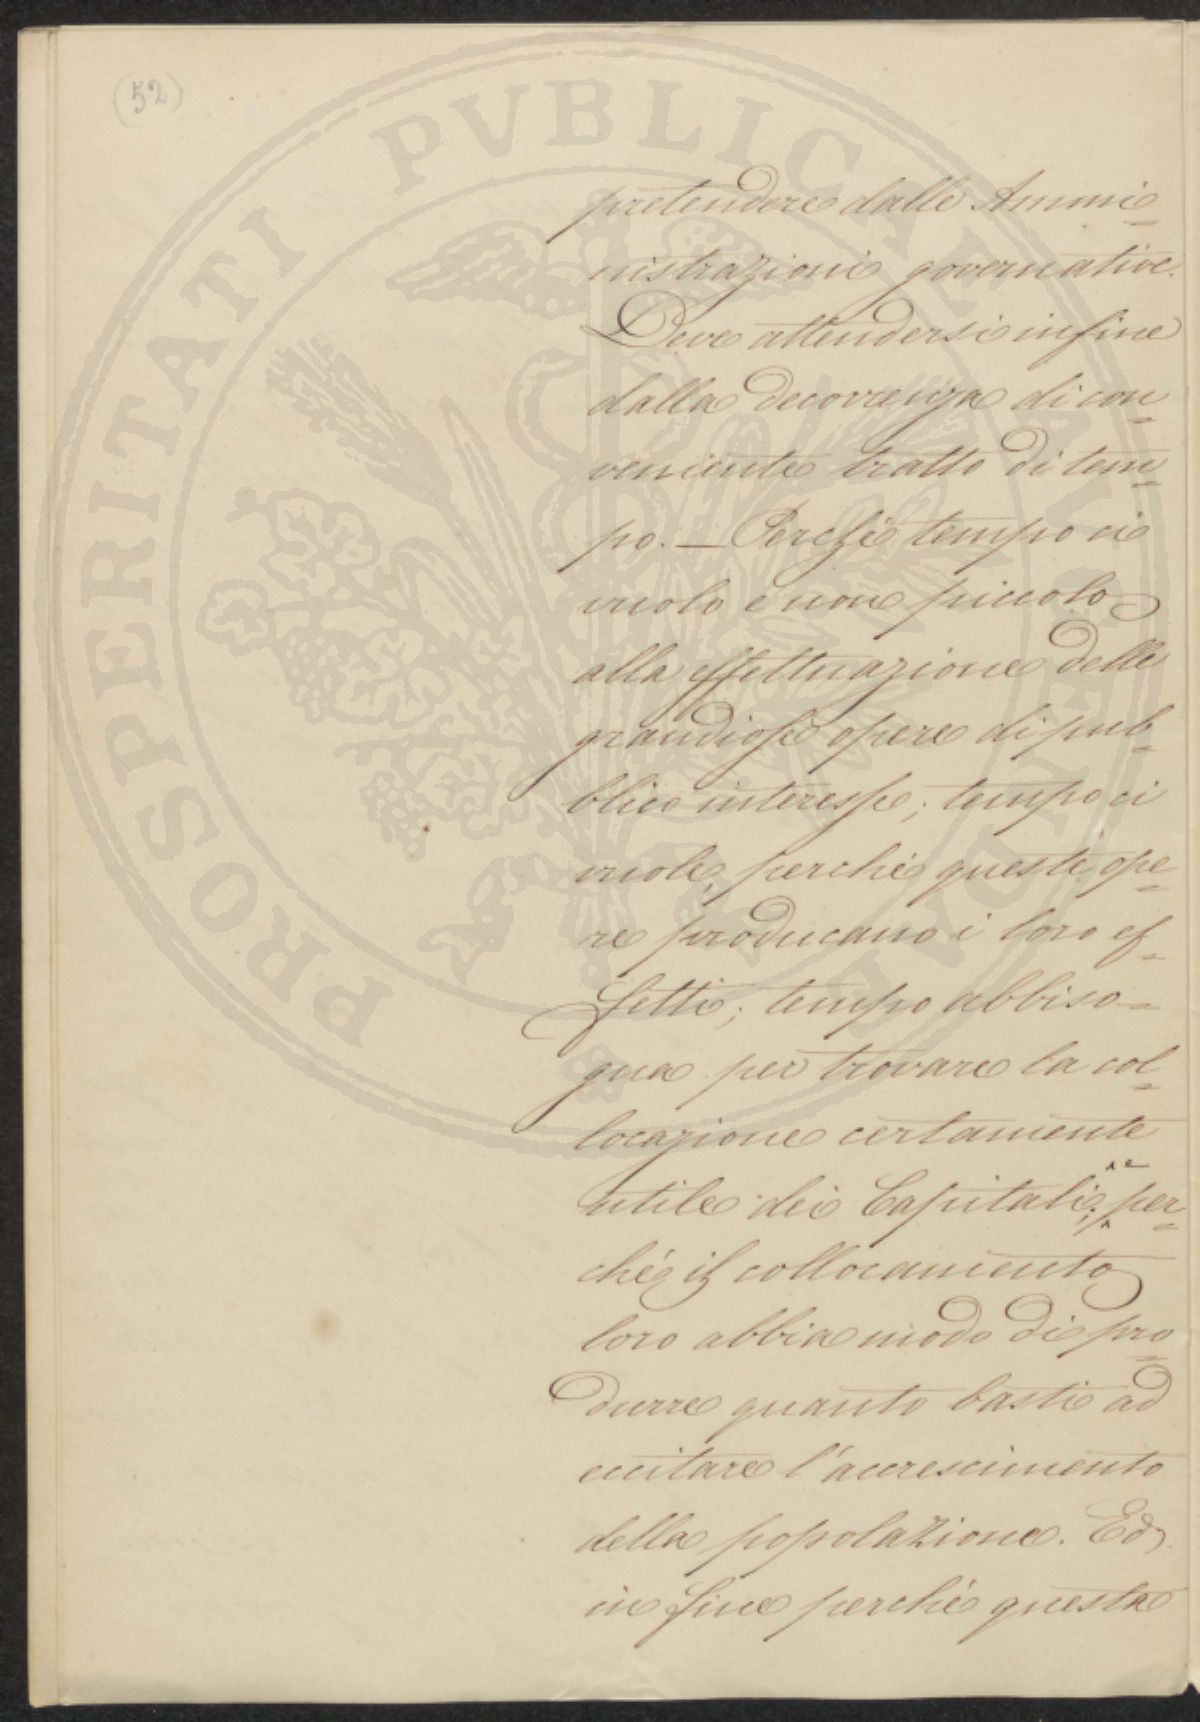 (52)
pretendere dalle Ammi=
nistrazioni governative.
Deve attendersi infine
dalla decorrenza di con=
veniente tratto di tem=
po. — Perché tempo ci
vuole e non piccolo
alla effettuazione delle
grandiose opere di pub=
blico interesse; tempo ci
vuole, perché queste ope=
re producano i loro ef=
fetti; tempo abbiso=
gna per trovare la col=
locazione certamente
utile dei Capitali; per=
ché il collocamento
loro abbia modo di pro=
durre quanto basti ad
eccitare l'accrescimento
della popolazione. Ed
in fine perché questa
PROSPERITATI PVBLICAE